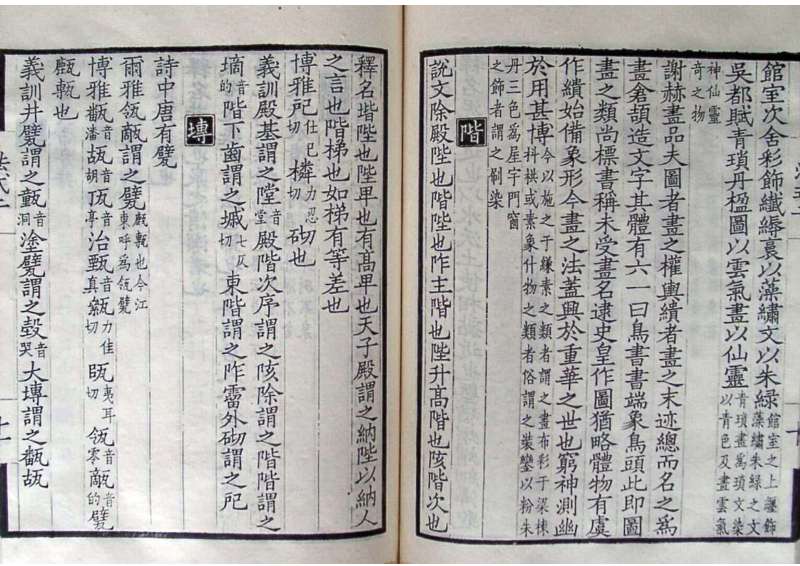 館室次舍彩飾纖縟裛以藻繡文以朱綠館室之上纏飾藻繡朱綠之文
吳都賦青瑣丹楹圖以雲氣畫以仙靈青瑣畫為瑣文染以青色及畫雲氣
神仙靈奇之物
謝赫畫品夫圖者畫之權輿繢者畫之末迹總而名之為
畫倉頡造文字其體有六一曰鳥書書端象鳥頭此即圖
畫之類尚標書稱未受畫名逮史皇作圖猶略體物有虞
作繢始備象形今畫之法蓋興於重華之世也窮神測幽
於用甚博今以施之于縑素之類者謂之畫布彩于梁棟枓栱或素象什物之類者俗謂之裝鑾以粉朱
丹三色為屋宇門窗之飾者謂之刷染
階
說文除殿陛也階陛也阼主階也陛升高階也陔階次也
釋名階陛也陛卑也有高卑也天子殿謂之納陛以納人
之言也階梯也如梯有等差也
博雅戺仕已切橉力忍切砌也
義訓殿基謂之隚音堂殿階次序謂之陔除謂之階階謂之
墑音的階下齒謂之磩七仄切東階謂之阼霤外砌謂之戺
塼
詩中唐有甓
爾雅瓴甋謂之甓甎也今江東呼為瓴甓
博雅音潘瓳音胡音亭治甄音真力佳切夷耳切瓴音零甋音的甓
甎也
義訓井甓謂之音洞塗甓謂之音哭大塼謂之瓳